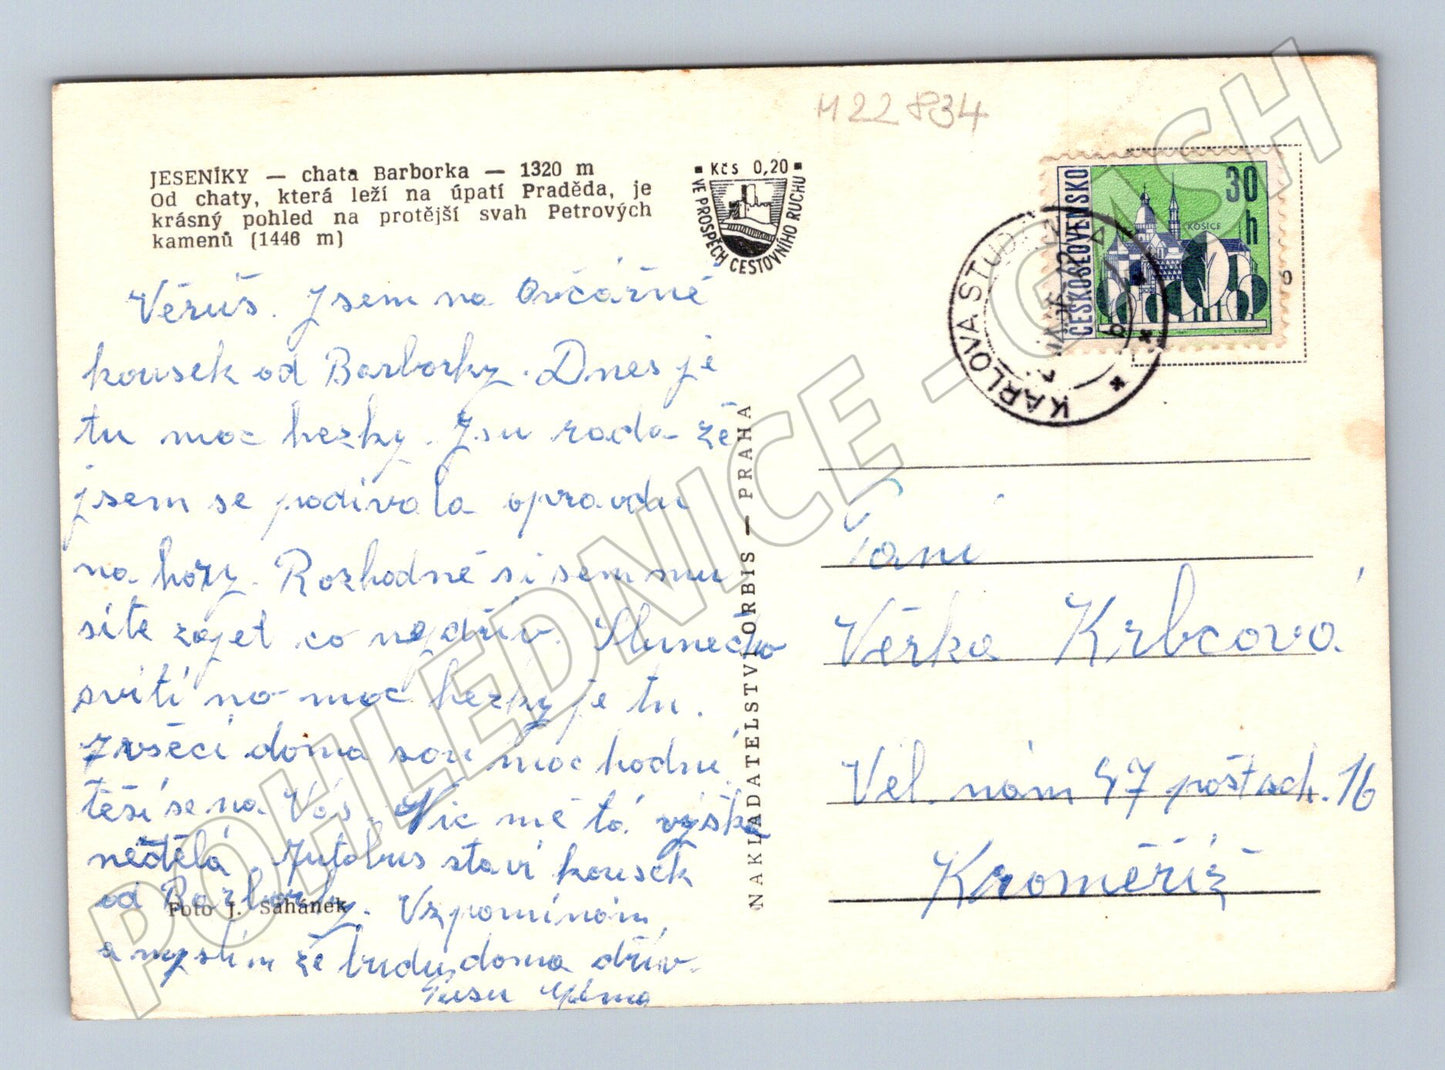 M22834
JESENÍKY — chata Barborka — 1320 m
Od chaty, která leží na úpatí Praděda, je
krásný pohled na protější svah Petrových
kamenů (1446 m)
Kčs 0,20
VE PROSPĚCH CESTOVNÍHO RUCHU
ČESKOSLOVENSKO
30 h
KOŠICE
KARLOVA STUD
Věruš. Jsem na Ovčárně
kousek od Barborky. Dnes je
tu moc hezky. Jsu rada že
jsem se podivala opravdu
na hory. Rozhodně si sem mu
síte zajet co nejdřív. Slunečko
svítí no moc hezky je tu.
Zvsěci doma sou moc hodní
těší se na Vás. Nic mě tá výška
nědělá. Autobus staví kousek
od Barborky. Vzpomínám
a myslím že budu doma dřív.
Foto J. Sahánek
NAKLADATELSTVÍ ORBIS — PRAHA
Paní
Věrka Krbcová
Vel. nám 47 pošt sch. 16
Kroměříž
POHLEDNICE - CASH